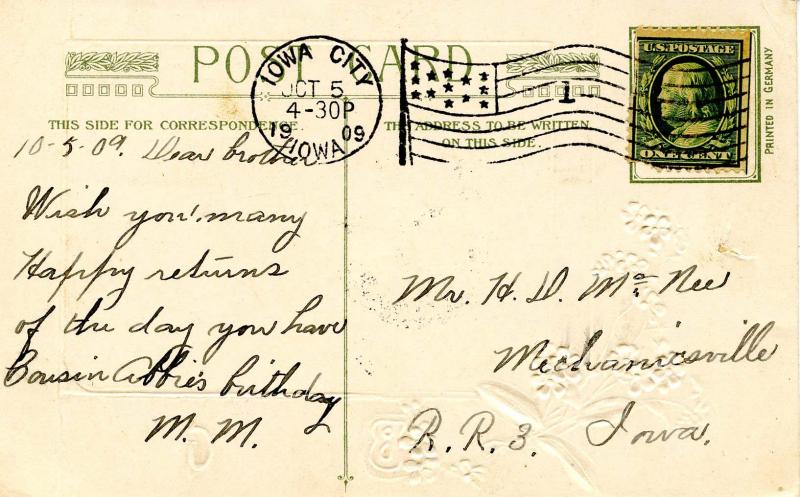 POST CARD
IOWA CITY
OCT 5
4-30P
19 09
IOWA
1
U.S. POSTAGE
ONE CENT
PRINTED IN GERMANY
THIS SIDE FOR CORRESPONDENCE.
THE ADDRESS TO BE WRITTEN
ON THIS SIDE.
10-5-09. Dear brother
Wish you many
Happy returns
of the day you have
Cousin Abbie's birthday
M. M.
Mr. H. D. Mc Nee
Mechanicsville
R. R. 3. Iowa.